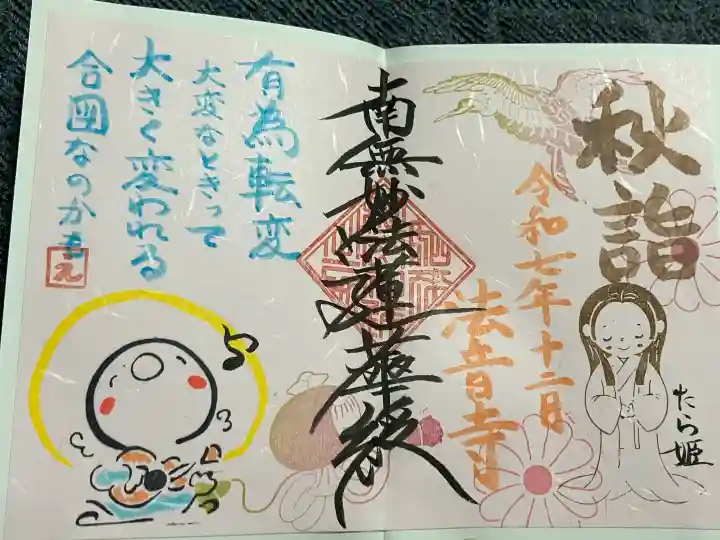 秋詣
令和七年十二月
法音寺
たら姫
南無妙法蓮華経
有為転変
大変なときって
大きく変われる
合図なのかも